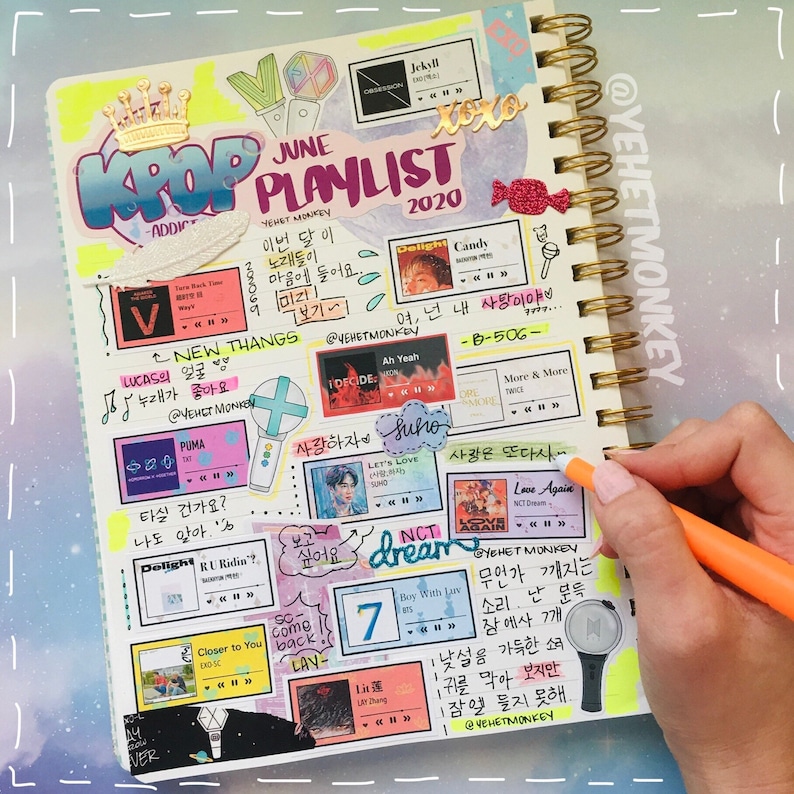 Jekyll
EXO [엑소]
OBSESSION
EXO
xoxo
KPOP
-ADDICT-
JUNE
PLAYLIST
2020
YEHET MONKEY
@YEHETMONKEY
이번 달 이
노래들이
마음에 들어요..
[미리
보기~
Delight
Candy
BAEKHYUN (백현)
여, 넌 내 사탕이야♡...
AWAKEN
THE WORLD
Turn Back Time
超时空 回
WayV
↑ NEW THANGS
LUCAS의 얼굴
누래가 좋아요
@YEHETMONKEY
@YEHETMONKEY
i DECIDE
Ah Yeah
iKON
-B-506-
MORE
& MORE
More & More
TWICE
PUMA
TXT
TOMORROW X TOGETHER
사랑하자♡
SUHO
LET'S LOVE
(사랑,하자)
SUHO
사랑은 또다시
LOVE
AGAIN
Love Again
NCT Dream
타실 건가요?
나도 알아.
보고
싶어요
NCT
dream
@YEHET MONKEY
Delight
R U Ridin'?
BAEKHYUN (백현)
7
Boy With Luv
BTS
무언가 깨지는
소리 난 문득
잠에서 깨
낯설음 가득한 소리
귀를 막아 보지만
잠엘 들지 못해
@YEHETMONKEY
SC
come
back!
Closer to You
EXO-SC
LAY-
Lit 莲
LAY Zhang